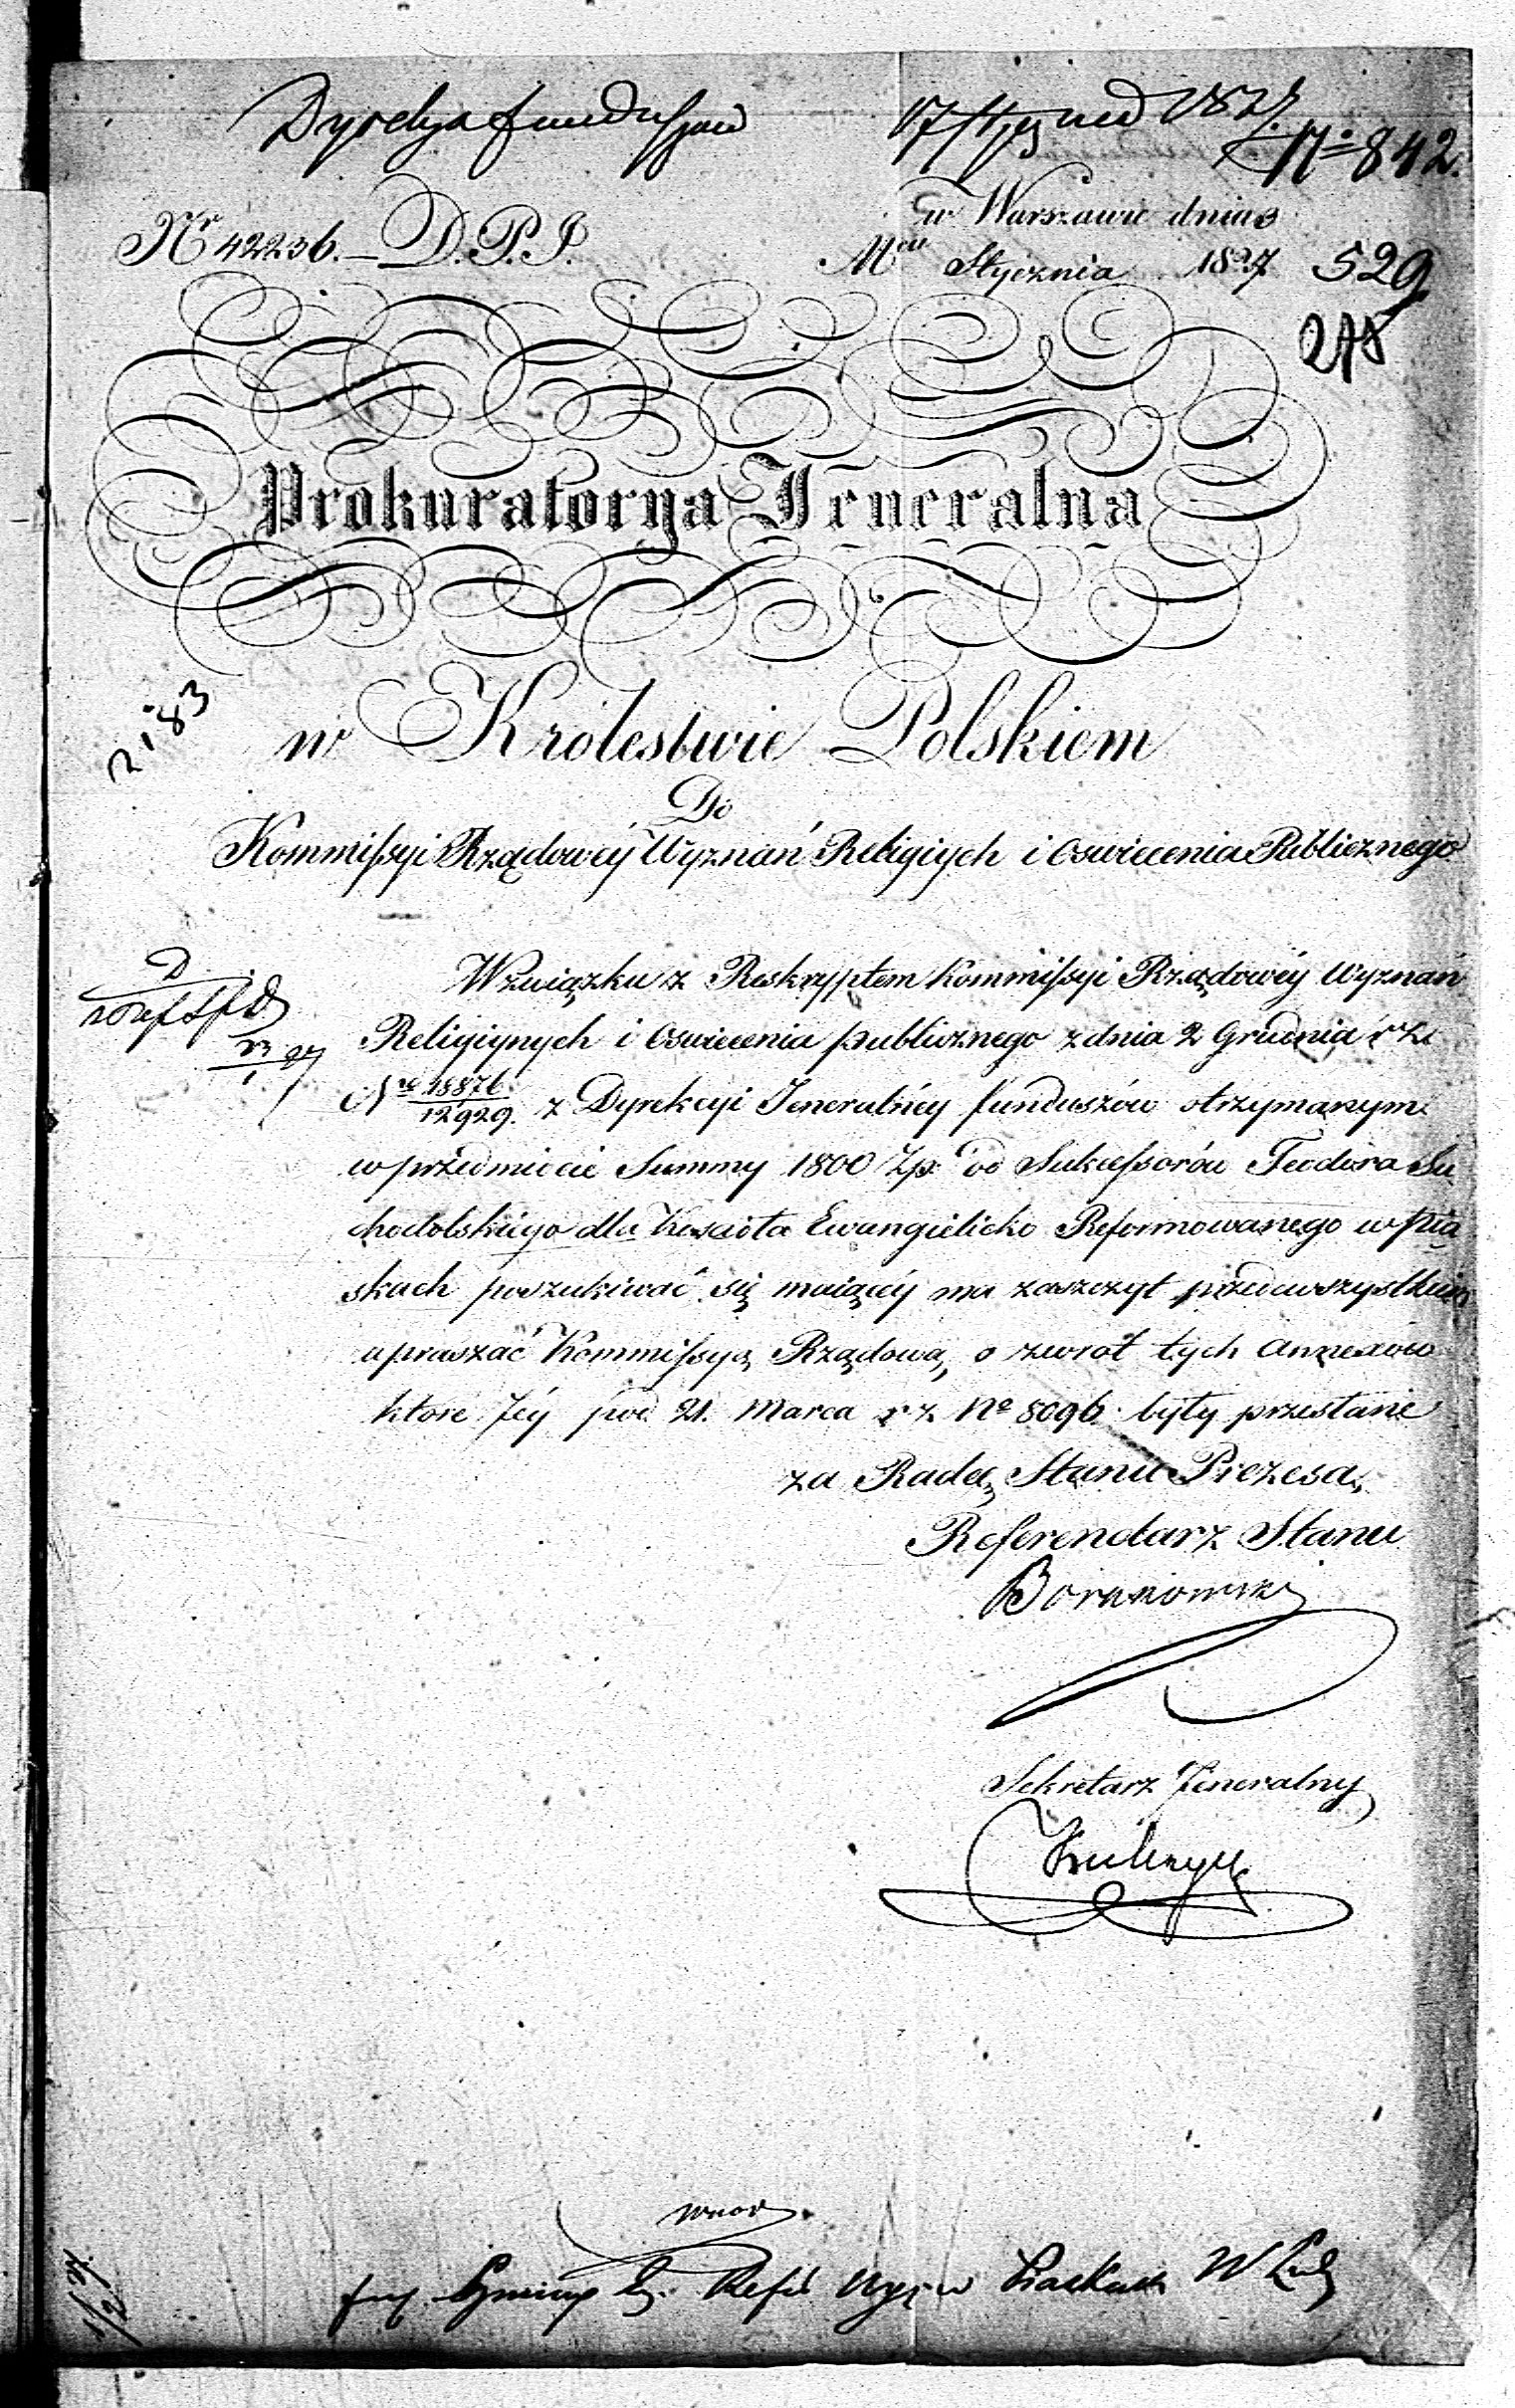 Dyrekcya funduszów 17 Stycznia 1827.
N° 842.
w Warszawie dnia 3
Nr 42236. – D.P.J.
Mca Stycznia 1827 529
Prokuratorya Jeneralna
2183
w Królestwie Polskiem
Do
Kommissyi Rządowéy Wyznań Religiych i Oswiecenia Publicznego
D
W Związku z Reskryptem Kommissyi Rządowéy Wyznań
Religiynych i Oswiecenia publicznego z dnia 2 Grudnia r z.
Nro 18876/12929. z Dyrekcyi Jeneralnéy funduszów otrzymanym
w przedmiocie Summy 1800 Zp. od Sukcessorów Teodora Su
chodolskiego dla Koscioła Ewangielicko Reformowanego w Pia
skach poszukiwać się maiącéy ma zaszczyt przedewszystkiem
upraszać Kommissyą Rządową, o zwrot tych annexów
które Jéy pod 21. Marca r z. No 8096. były przesłane
za Radcę Stanu Prezesa,
Referendarz Stanu
Sekretarz Jeneralny